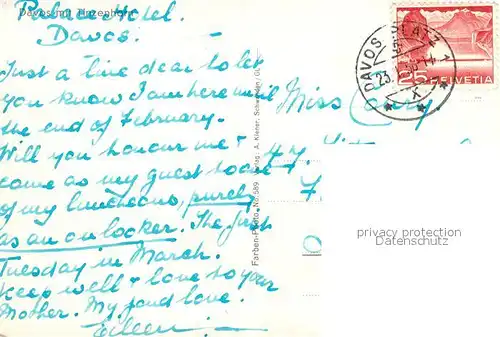 Palace Hotel.
Davos mit Tinzenhorn
Davos.
Just a line dear to let
you know I am here until
the end of February.
Will you honour me &
come as my guest to one
of my luncheons, purely
as an on looker. The first
Tuesday in March.
Keep well & love to your
Mother. My fond love.
Eileen
Farben-Photo No. 589
Verlag: A. Kiener, Schwanden/GL
Miss
DAVOS PLATZ 1
23
25
HELVETIA
privacy protection
Datenschutz